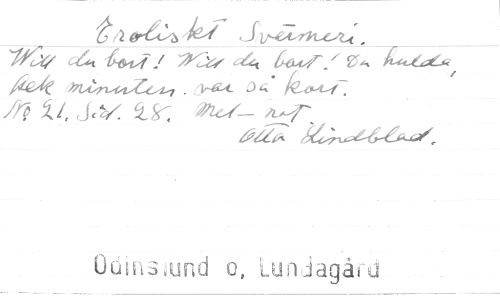 Eroliskt Svärmeri.
Will du bort! Will du bort! Du hulda,
kek minuten var så kort.
No 21. Sid. 28. Mel-not
Otto Lindblad.
Odinslund o, Lundagård